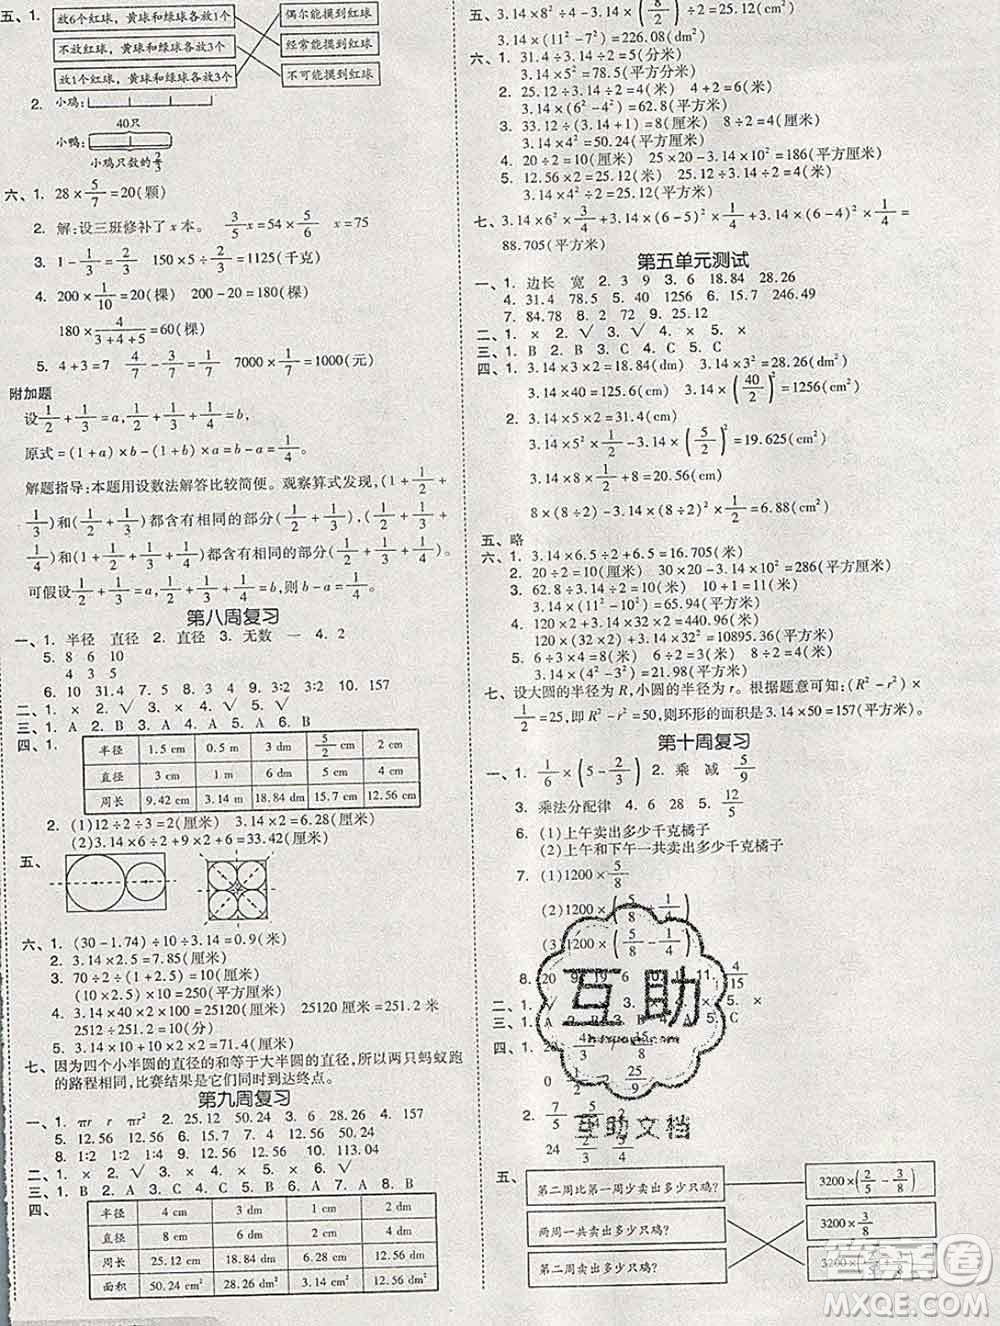 五、1. 放6个红球，黄球和绿球各放1个 偶尔能摸到红球
不放红球，黄球和绿球各放3个 经常能摸到红球
放1个红球，黄球和绿球各放3个 不可能摸到红球
2. 小鸡:
40只
小鸭:
小鸡只数的2/3
六、1. 28×5/7=20(颗)
2. 解:设三班修补了x本。 3/5x=54×5/6 x=75
3. 1-1/3=2/3 150×5÷2/3=1125(千克)
4. 200×1/10=20(棵) 200-20=180(棵)
180×4/(3+4+5)=60(棵)
5. 4+3=7 4/7-3/7=1/7 7000×1/7=1000(元)
附加题
设1/2+1/3=a,1/2+1/3+1/4=b,
原式=(1+a)×b-(1+b)×a=b-a=1/4
解题指导:本题用设数法解答比较简便。观察算式发现,(1+1/2+
1/3)和(1/2+1/3)都含有相同的部分(1/2+1/3),(1+1/2+1/3+
1/4)和(1/2+1/3+1/4)都含有相同的部分(1/2+1/3+1/4)。
可假设1/2+1/3=a,1/2+1/3+1/4=b,则b-a=1/4。
第八周复习
一、1. 半径 直径 2. 直径 3. 无数 一 4. 2
5. 8 6 10
4 3 5
6. 10 31.4 7. 5 8. 3 9. 3∶2 3∶2 10. 157
二、1. × 2. √ 3. × 4. × 5. √
三、1. A 2. B 3. A 4. A 5. A 6. B
四、1. 半径 1.5 cm 0.5 m 3 dm 5/2 cm 2 cm
直径 3 cm 1 m 6 dm 5 cm 4 cm
周长 9.42 cm 3.14 m 18.84 dm 15.7 cm 12.56 cm
2. (1)12÷2÷3=2(厘米) 3.14×2=6.28(厘米)
(2)3.14×6÷2+9×2+6=33.42(厘米)
五、
六、1. (30-1.74)÷10÷3.14=0.9(米)
2. 3.14×2.5=7.85(厘米)
3. 70÷2÷(2.5+1)=10(厘米)
(10×2.5)×10=250(平方厘米)
4. 3.14×40×2×100=25120(厘米) 25120厘米=251.2米
2512÷251.2=10(分)
5. 3.14×10+10×2×2=71.4(厘米)
七、因为四个小半圆的直径的和等于大半圆的直径,所以两只蚂蚁跑
的路程相同,比赛结果是它们同时到达终点。
第九周复习
一、1. πr r πr² 2. 25.12 50.24 3. 6 28.26 4. 157
5. 12.56 12.56 6. 9.42 7. 31.4 50.24
8. 1∶2 1∶2 1∶4 9. 12.56 10. 113.04
二、1. × 2. √ 3. × 4. √ 5. ×
三、1. B 2. A 3. C 4. B 5. B 6. A 7. A 8. B
四、 半径 4 cm 3 dm 1 cm 2 dm
直径 8 cm 6 dm 2 cm 4 dm
周长 25.12 cm 18.84 dm 6.28 cm 12.56 dm
面积 50.24 cm² 28.26 dm² 3.14 cm² 12.56 dm²
五、3.14×8²÷4-3.14×(8/2)²÷2=25.12(cm²)
3.14×(11²-7²)=226.08(dm²)
六、1. 31.4÷3.14÷2=5(分米)
3.14×5²=78.5(平方分米)
2. 25.12÷3.14÷2=4(米) 4+2=6(米)
3.14×(6²-4²)=62.8(平方米)
3. 33.12÷(3.14+1)=8(厘米) 8÷2=4(厘米)
3.14×4²=50.24(平方厘米)
4. 20÷2=10(厘米) 25×20-3.14×10²=186(平方厘米)
5. 12.56×2=25.12(厘米) 25.12÷3.14÷2=4(厘米)
3.14×4²÷2=25.12(平方厘米)
七、3.14×6²×3/4+3.14×(6-5)²×1/4+3.14×(6-4)²×1/4=
88.705(平方米)
第五单元测试
一、1. 边长 宽 2. 3 9 3. 6 18.84 28.26
4. 31.4 78.5 5. 40 1256 6. 157 246.49
7. 84.78 8. 2 72 9. 25.12
二、1. × 2. √ 3. √ 4. × 5. ×
三、1. B 2. B 3. C 4. C 5. B
四、1. 3.14×3×2=18.84(dm) 3.14×3²=28.26(dm²)
3.14×40=125.6(cm) 3.14×(40/2)²=1256(cm²)
2. 3.14×5×2=31.4(cm)
3.14×5²×1/2-3.14×(5/2)²=19.625(cm²)
3.14×8²×1/4=50.24(cm²)
8×(8÷2)×1/2-3.14×(2÷2)²×1/4=6.88(cm²)
五、略
六、1. 3.14×6.5÷2+6.5=16.705(米)
2. 20÷2=10(厘米) 30×20-3.14×10²=286(平方厘米)
3. 62.8÷3.14÷2=10(米) 10+1=11(米)
3.14×(11²-10²)=65.94(平方米)
4. 120×2+3.14×32×2=440.96(米)
120×(32×2)+3.14×32²=10895.36(平方米)
5. 6÷3×4=8(厘米) 6÷2=3(厘米) 8÷2=4(厘米)
3.14×(4²-3²)=21.98(平方厘米)
七、设大圆的半径为R,小圆的半径为r。根据题意可知:(R²-r²)×
1/2=25,即R²-r²=50,则环形的面积是3.14×50=157(平方厘米)。
第十周复习
一、1. 1/6×(5-2/3) 2. 乘 减 5/9
3. 乘法分配律 4. 6 28 5. 12/5
6. (1)上午卖出多少千克橘子
(2)上午和下午一共卖出多少千克橘子
7. (1)1200×5/8
(2)1200×(5/8+1/4)
(3)1200×(5/8-1/4)
8. 20 11. 4/15
5. ×
5. C
四、1.
0 25/9
2. 7/5
24 2/3
五、 第二周比第一周少卖出多少只鸡? 3200×(2/5-3/8)
两周一共卖出多少只鸡? 3200×3/8
第二周卖出多少只鸡?
互助
互助文档
答案圈
MXQE.COM